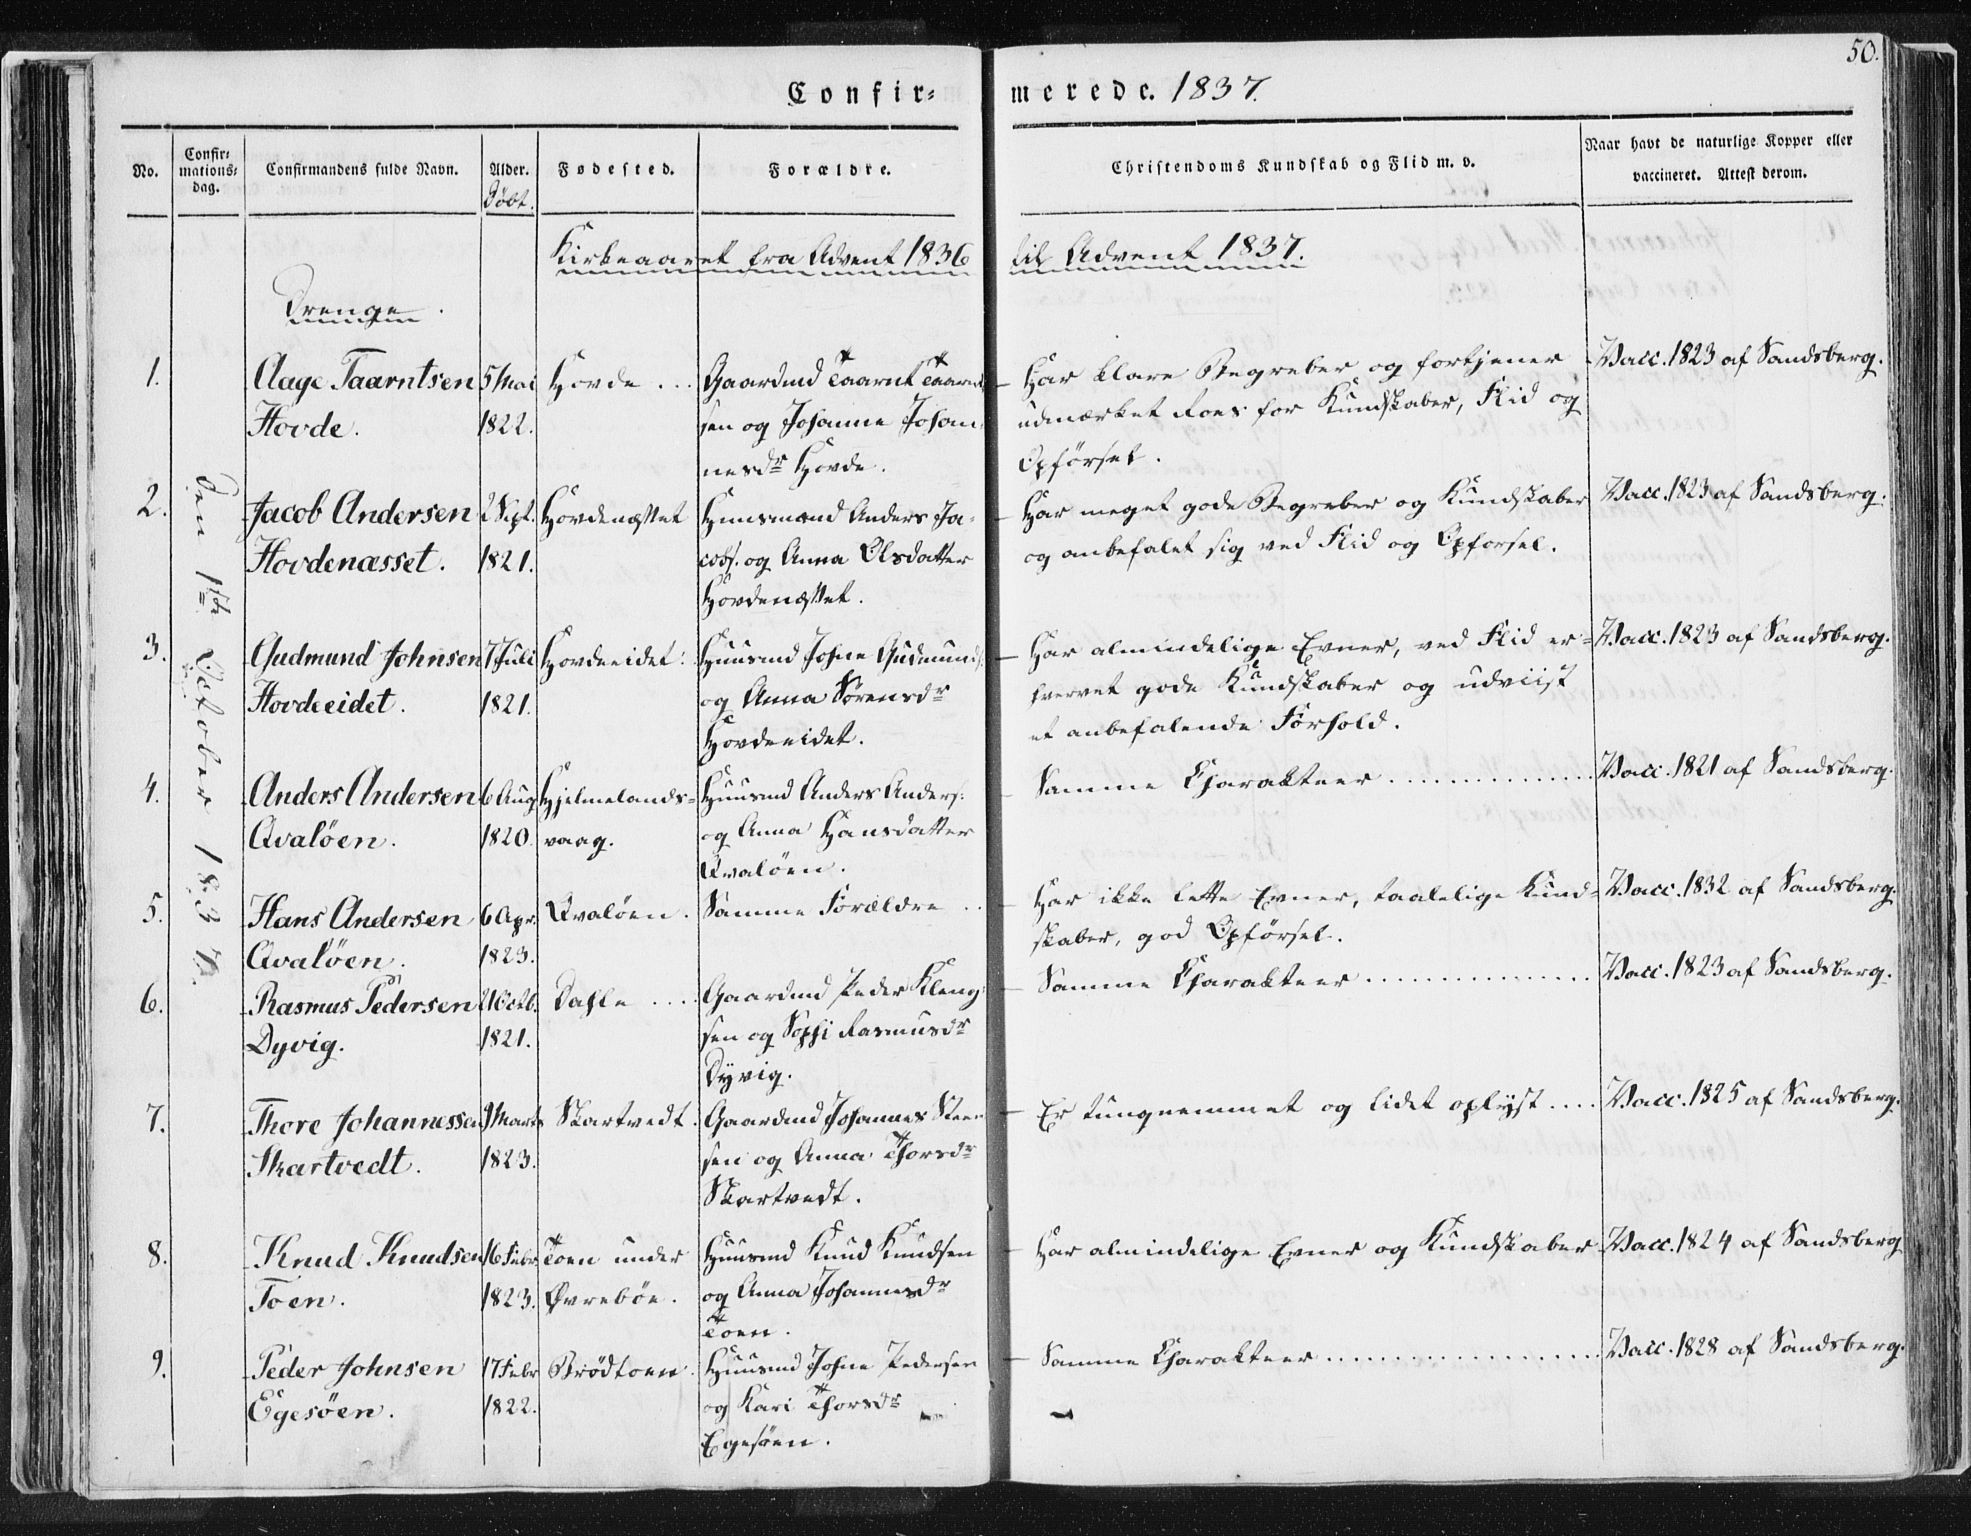 50.
Confir=merede. 1837.
No. Confir=mations=dag. Confirmandens fulde Navn. Alder. Døbt. Fødested. Forældre. Christendoms Kundskab og Flid m. v. Naar havt de naturlige Kopper eller vaccineret. Attest derom.
Kirkeaaret fra Advent 1836 til Advent 1837.
Drenge.
Den 1ste October 1837.
1. Aage Taarntsen 5 Mai Hovde ... Gaardmd Taarnt Taarnt= Har klare Begreber og fortjener Vacc. 1823 af Sandsberg.
Hovde. 1822. sen og Johanne Johan= udmærket Roes for Kundskaber, Flid og
nesdr Hovde. Opførsel.
2. Jacob Andersen 2 Sept. Hovdenæsset Huusmand Anders Ja= Har meget gode Begreber og Kundskaber Vacc. 1823 af Sandsberg.
Hovdenæsset. 1821. cobs. og Anna Olsdatter og anbefalet sig ved Flid og Opførsel.
Hovdenæsset.
3. Gudmund Johnsen 7 Juli Hovdeeidet. Huusmd Johne Gudmunds. Har almindelige Evner, ved Flid er= Vacc. 1823 af Sandsberg.
Hovdeeidet. 1821. og Anna Sørensdr hvervet gode Kundskaber og udviist
Hovdeeidet. et anbefalende Forhold.
4. Anders Andersen 6 Aug Hjelmelands= Huusmd Anders Anders: Samme Charakteer ............... Vacc. 1821 af Sandsberg.
Qvaløen. 1820. vaag. og Anna Hansdatter
Qvaløen.
5. Hans Andersen 6 Apr. Qvaløen. Samme Forældre .. Har ikke lette Evner, taalelige Kund= Vacc. 1832 af Sandsberg.
Qvaløen. 1823. skaber, god Opførsel.
6. Rasmus Pedersen 21 Octb. Dahle .... Gaardmd Peder Kleng= Samme Charakteer ............... Vacc. 1823 af Sandsberg.
Dyvig. 1821. sen og Sophi Rasmusdr
Dyvig.
7. Thore Johannessen 9 Marts Skartvedt. Gaardmd Johannes Steen= Er tungnemmet og lidet oplyst .... Vacc. 1825 af Sandsberg.
Skartvedt. 1823. sen og Anna Thorsdr
Skartvedt.
8. Knud Knudsen 16 Febr. Toen under Huusmd Knud Knudsen Har almindelige Evner og Kundskaber Vacc. 1824 af Sandsberg
Toen. 1823. Øvrebøe. og Anna Johannesdr
Toen.
9. Peder Johnsen 17 Febr Brødtoen. Huusmd Johne Pedersen Samme Charakteer .................. Vacc. 1828 af Sandsberg.
Egesøen. 1822. og Kari Thorsdr
Egesøen.